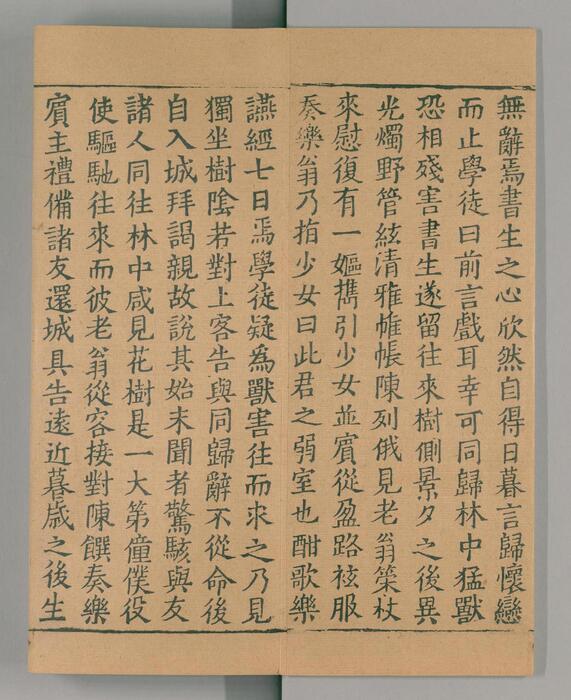 無辭焉書生之心欣然自得日暮言歸懷戀
而止學徒曰前言戲耳幸可同歸林中猛獸
恐相殘害書生遂留往來樹側景夕之後異
光燭野管絃清雅帷帳陳列俄見老翁䇿杖
來慰復有一嫗擕引少女並賓從盈路袨服
奏樂翁乃指少女曰此君之弱室也酣歌樂
讌經七日焉學徒疑為獸害往而求之乃見
獨坐樹陰若對上客告與同歸辭不從命後
自入城拜謁親故說其始末聞者驚駭與友
諸人同往林中咸見花樹是一大第僮僕役
使驅馳往來而彼老翁從容接對陳饌奏樂
賓主禮備諸友還城具告遠近朞歲之後生